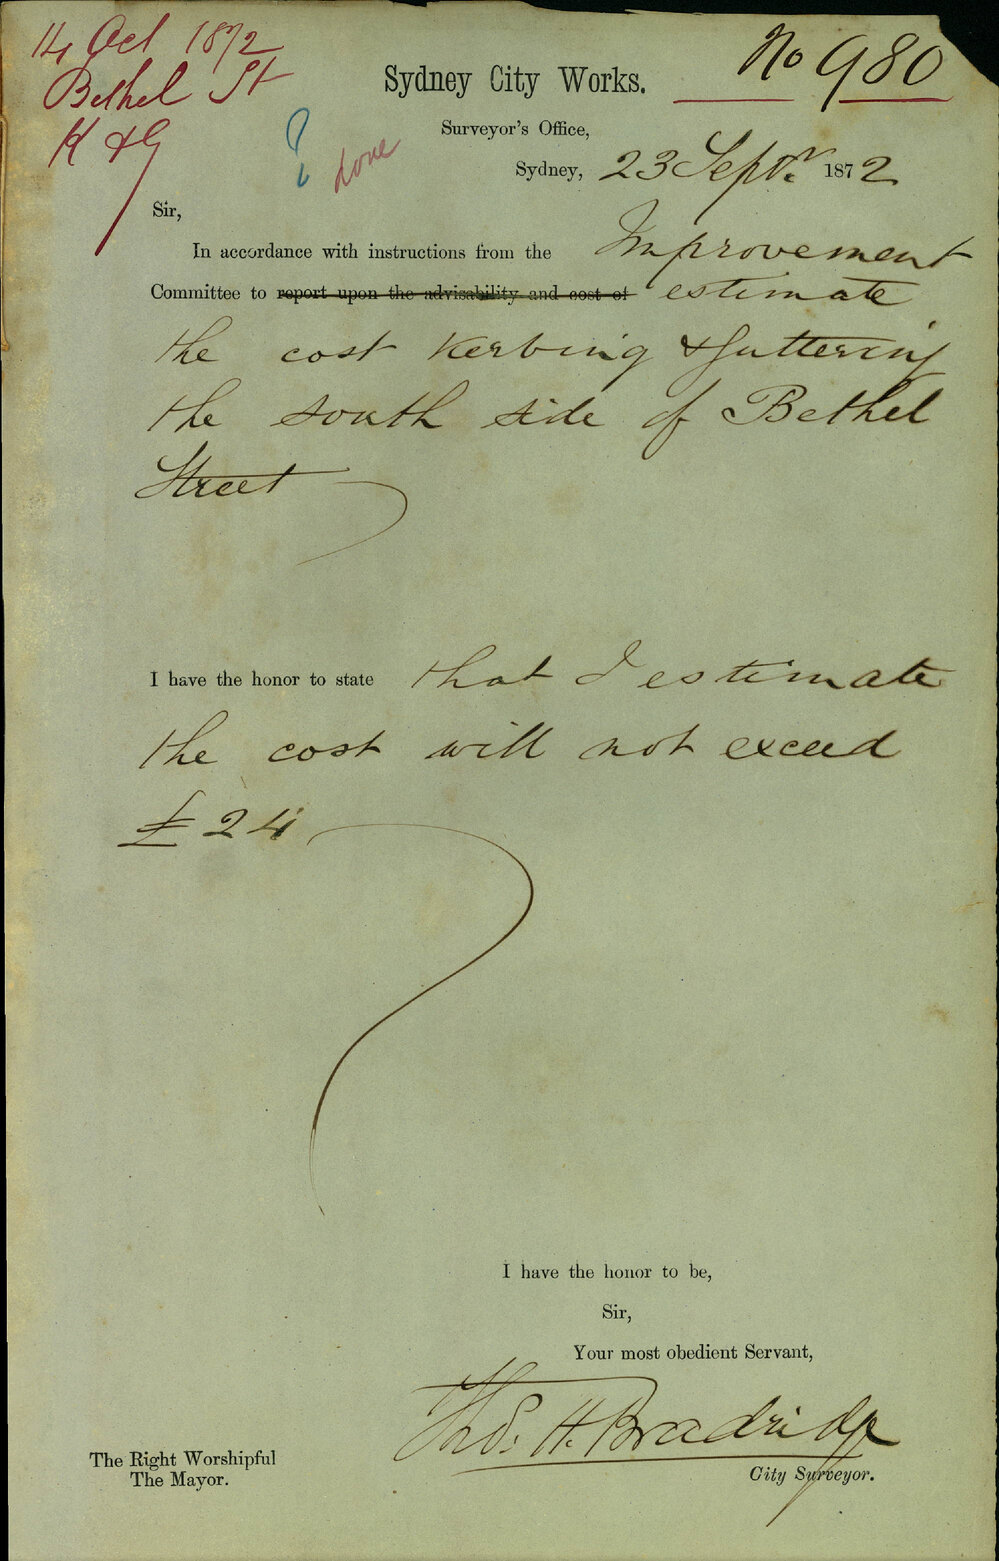 14 Oct 1872
Bethel St
K & G
No 980
Sydney City Works.
Surveyor's Office,
? done
Sydney, 23 Septr. 1872
Sir,
In accordance with instructions from the Improvement
Committee to report upon the advisability and cost of estimate
the cost Kerbing & Guttering
the south side of Bethel
Street
I have the honor to state that I estimate
the cost will not exceed
£24
I have the honor to be,
Sir,
Your most obedient Servant,
Thos. H. Bradridge
City Surveyor.
The Right Worshipful
The Mayor.